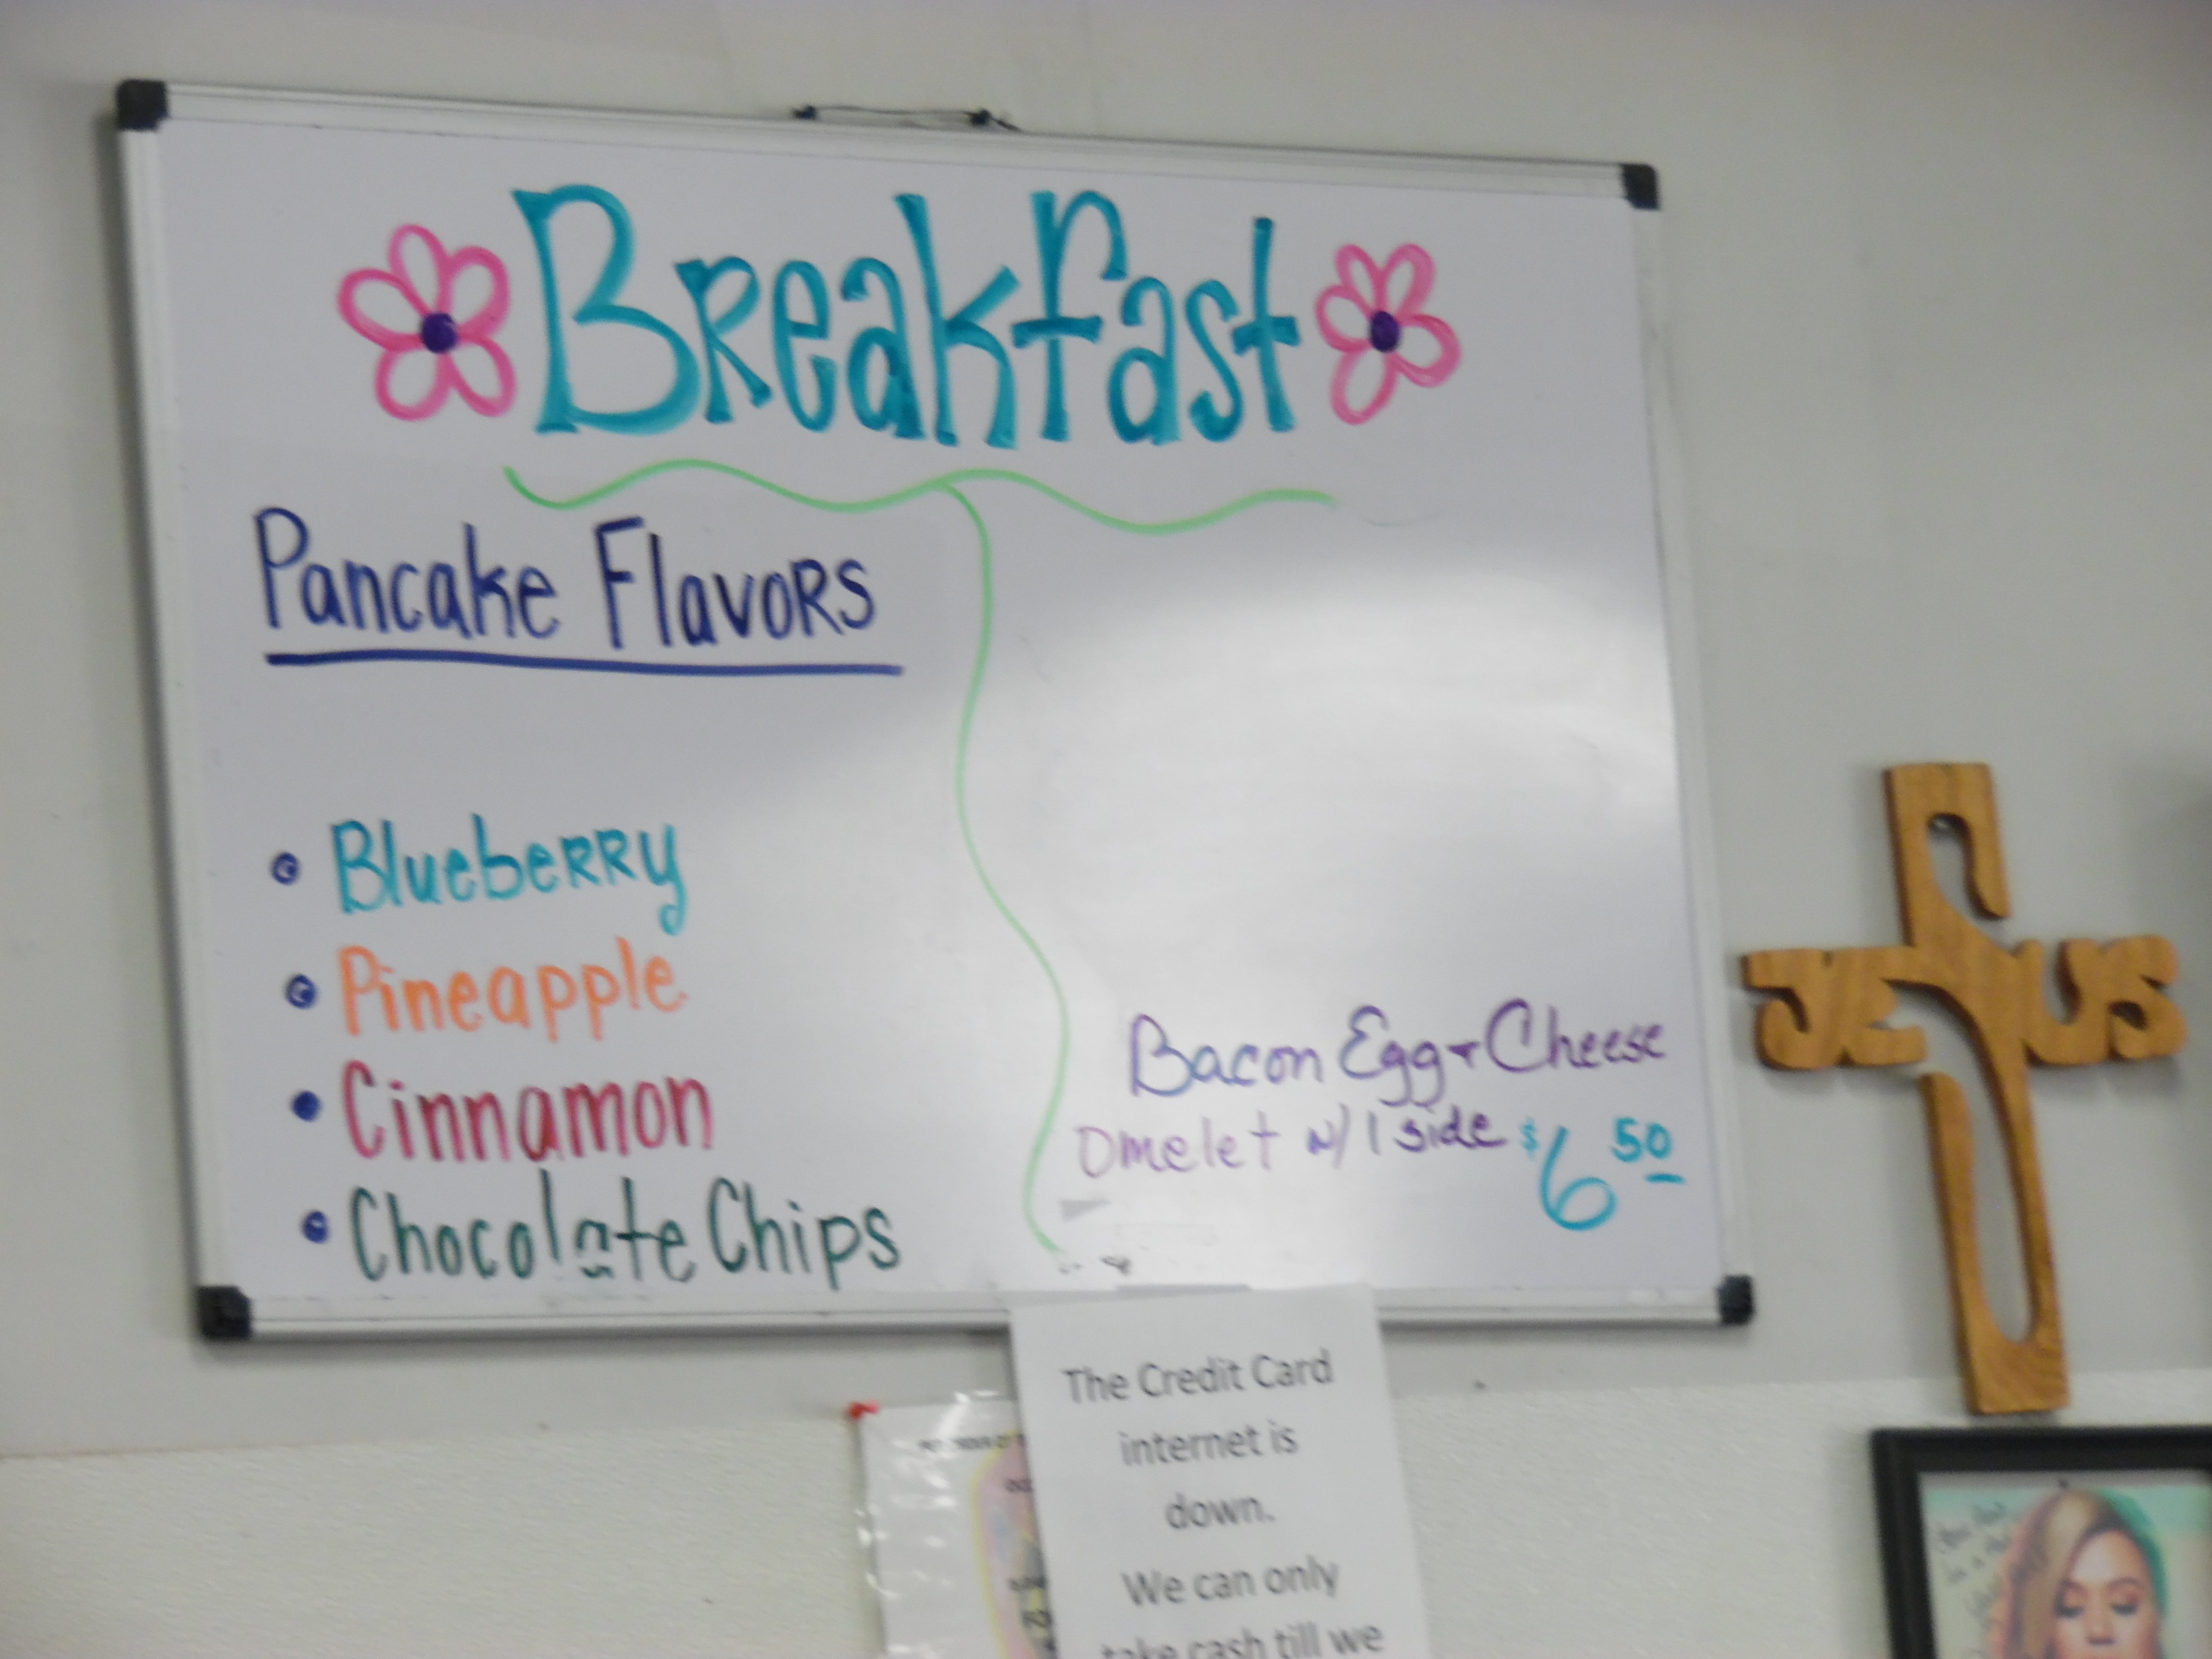 Breakfast
Pancake Flavors
Blueberry
Pineapple
Cinnamon
Chocolate Chips
Bacon Egg + Cheese
Omelet w/ 1 side $6 50
JESUS
The Credit Card
internet is
down.
We can only
take cash till we